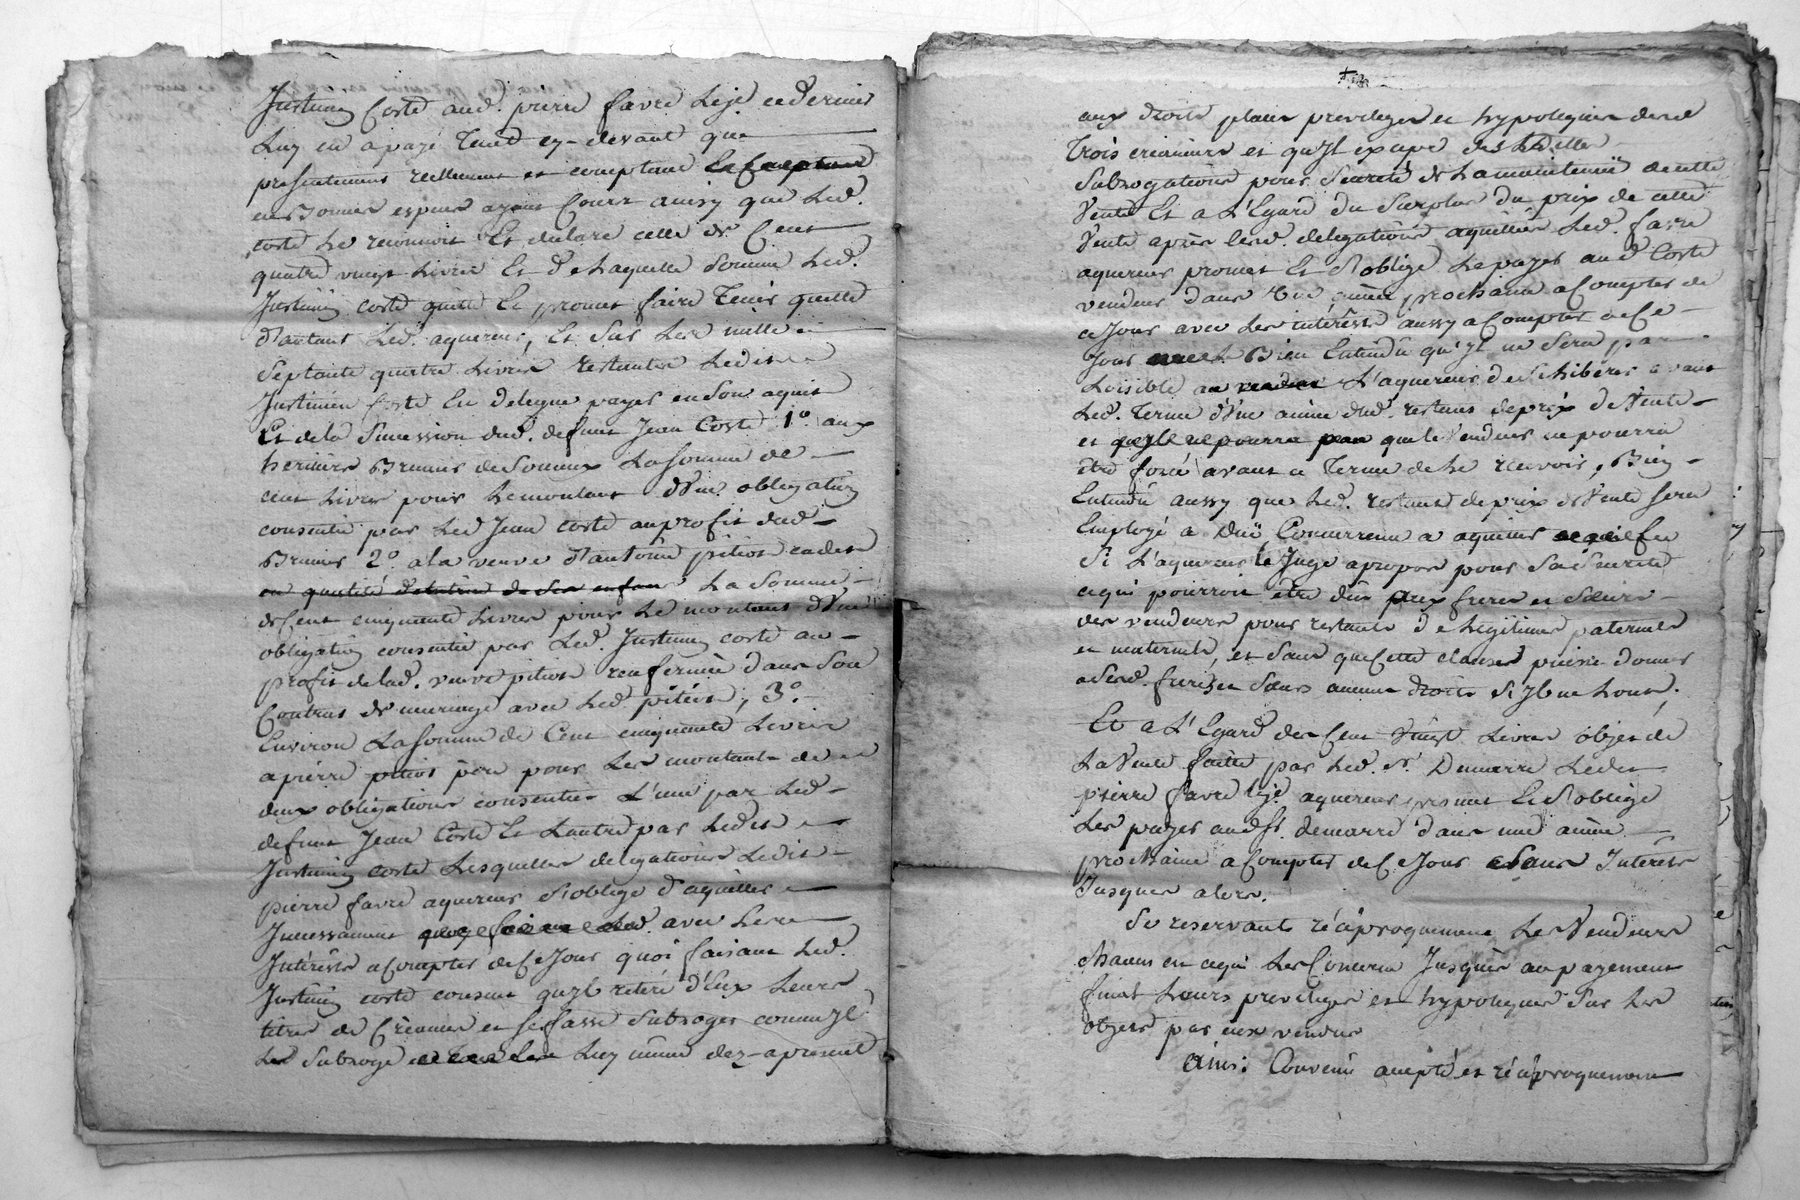 Justinien Coste aud. pierre favre leje ce dernier
Luy en a payé tend cy-devant que
presentement reellement et comptant
en bonnes espèces ayant Cours ainsy que led.
coste Le reconnoit Et declare celle de Cent
quatre vingt Livres Et de Laquelle Somme Led.
Justinien coste quitte Et promet faire tenir quitte
d'autant Led. aquereur, Et sur Les mille
Septante quatre Livres restantes Ledit
Justinien Coste En delegue payer en Son aquit
Et de la Succession dud. defunt Jean Coste 1.° aux
heritiers Brunier de Lasomme de
cent Livres pour Le montant d'Une obligation
consentie par Led Jean coste au profit dud
Brunier 2.° a la veuve d'antoine pition cadet
en qualité de tutrice de Ses enfans La Somme
de Cent cinquante Livres pour Le montant d'Une
obligation consentie par Led. Justinien coste au
profit de lad. veuve pition renfermée dans Son
Contrat de mariage avec Led pition, 3.°
Environ La Somme de Cent cinquante Livres
a pierre pition père pour Les montants de
deux obligations consenties L'une par Led
defunt Jean Coste Et L'autre par Ledit
Justinien coste Lesquelles delegations Ledit
pierre favre aquereur S'oblige d'aquitter
Incessamment avec Les
Intérêts a Compter de Ce Jour quoi faisant Led.
Justinien coste consent qu'yl retire d'Eux Leurs
titres de Créance et Se fasse Subroger comme yl
Le Subroge Luy même dez-apresent
aux droits places privileges et hypoteques desd
trois creanciers et qu'yl excipe desdittes
Subrogations pour Seureté & La maintenüe de cette
Vente Et a L'Egard du Surplus du prix de cette
Vente après lesd. delegations aquittées Led. favre
aquereur promet Et S'oblige Le payer aud Coste
vendeur dans Une année prochaine a Compter de
ce Jour avec Les intérêts aussy a Compter de Ce
Jour Bien Entendû qu'yl ne Sera pas
Loisible L'aquereur de Se Libérer avant
Led. terme d'Une année dud. restant de prix de Vente
et que le Vendeur ne pourra
être forcé avant ce terme de Le recevoir, Bien
Entendû aussy que Led. restant de prix de Vente sera
Employé a Duë Concurrence a aquitter
Si L'aquereur le Juge apropos pour Sa Seureté
ce qui pourroit être dûs aux freres et Sœurs
des vendeurs pour restants de Legitimes paternels
et maternels, et Sans que Cette clause puisse donner
a Sesd. freres et Sœurs aucuns droits S'yls ne L'ont.
Et a L'Egard des Cent Vingt Livres objet de
La Vente faitte par Led. Sr. Demarre Ledit
pierre favre leje aquereur promet Et S'oblige
Les payer aud Sr. demarre dans une année
prochaine a Compter de Ce Jour Sans Intérêts
Jusques alors.
Se reservants réciproquement Les Vendeurs
chacun en ce qui Les Concerne Jusques au payement
final Leurs privileges et hypoteques Sur Les
objets par eux vendus
Ainsi Convenû accepté et réciproquement